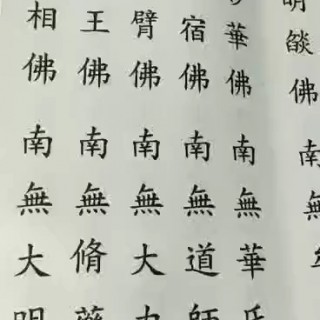 明燄佛南無
華佛南無華氏
宿佛南無道師
臂佛南無大力
王佛南無脩藥
相佛南無大明